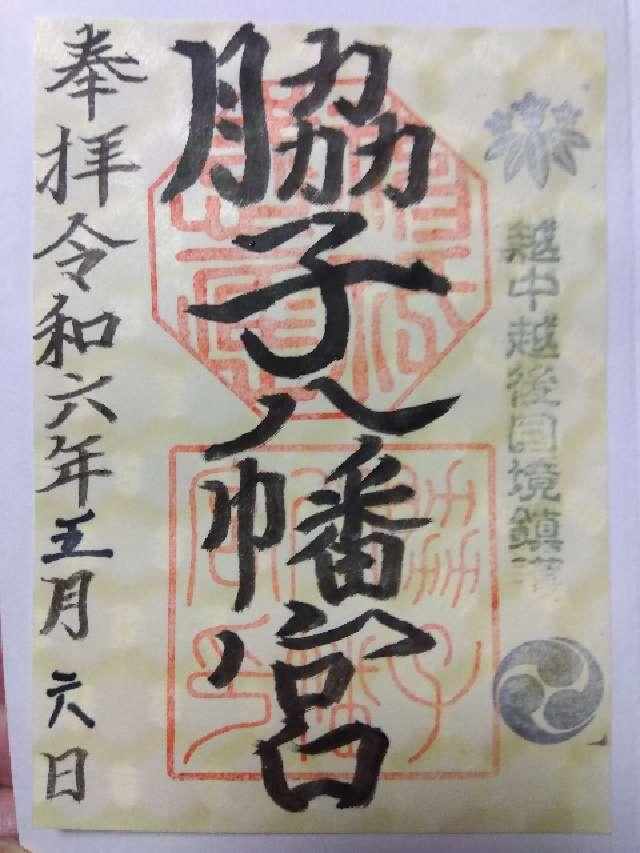 越中越後国境鎮護
脇子八幡宮
奉拝令和六年五月六日